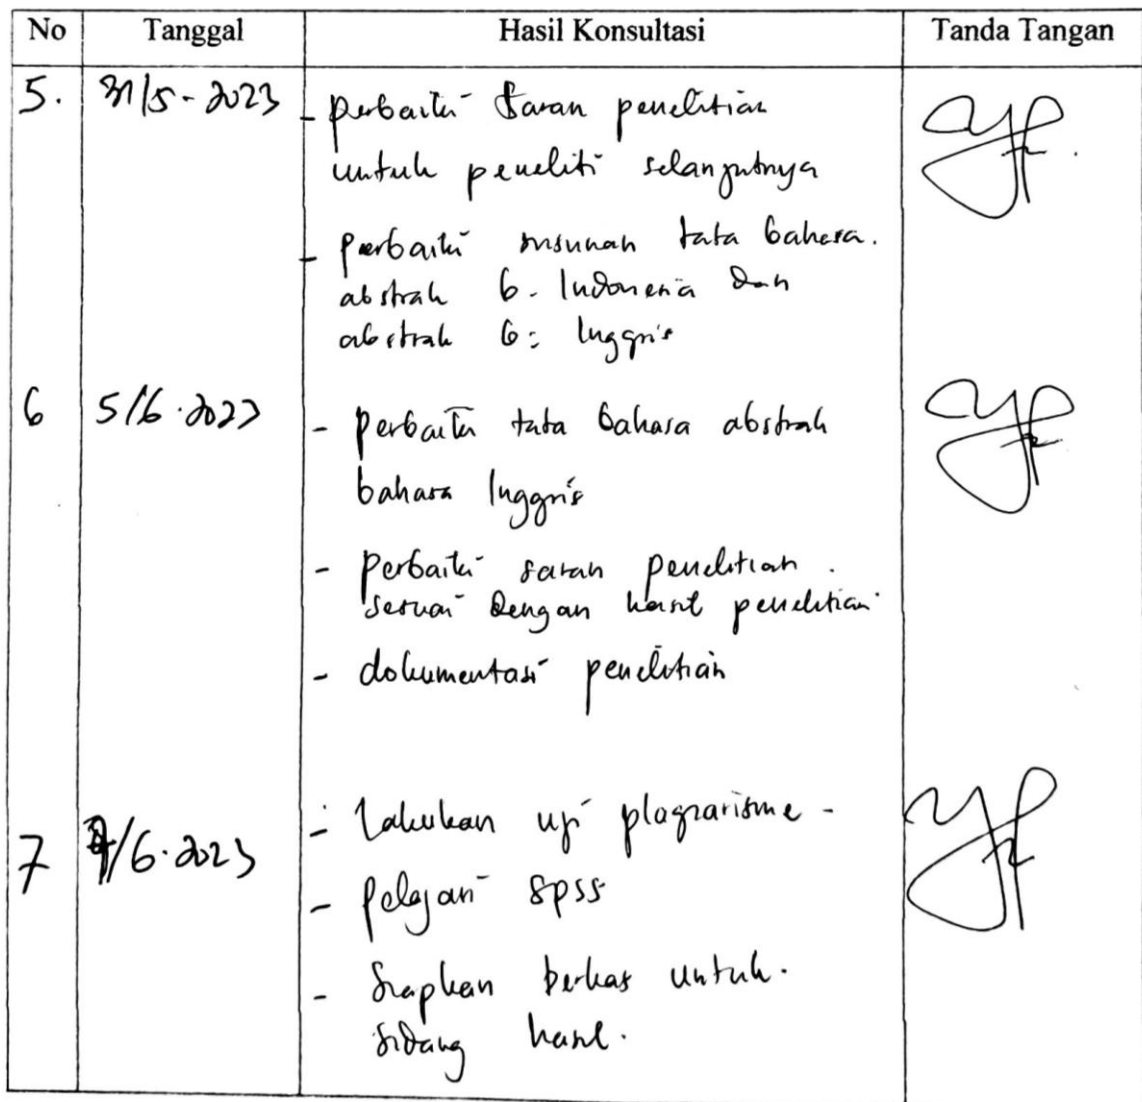 No Tanggal Hasil Konsultasi Tanda Tangan
5. 31/5-2023 - perbaiki Saran penelitian
untuk peneliti selanjutnya
- perbaiki susunan tata bahasa.
abstrak b. Indonesia dan
abstrak b. Inggris
6 5/6.2023 - perbaiki tata bahasa abstrak
bahasa Inggris
- perbaiki saran penelitian.
sesuai dengan hasil penelitian
- dokumentasi penelitian
- lakukan uji plagiarisme -
7 7/6.2023
- pelajari spss
- siapkan berkas untuk.
sidang hasil.